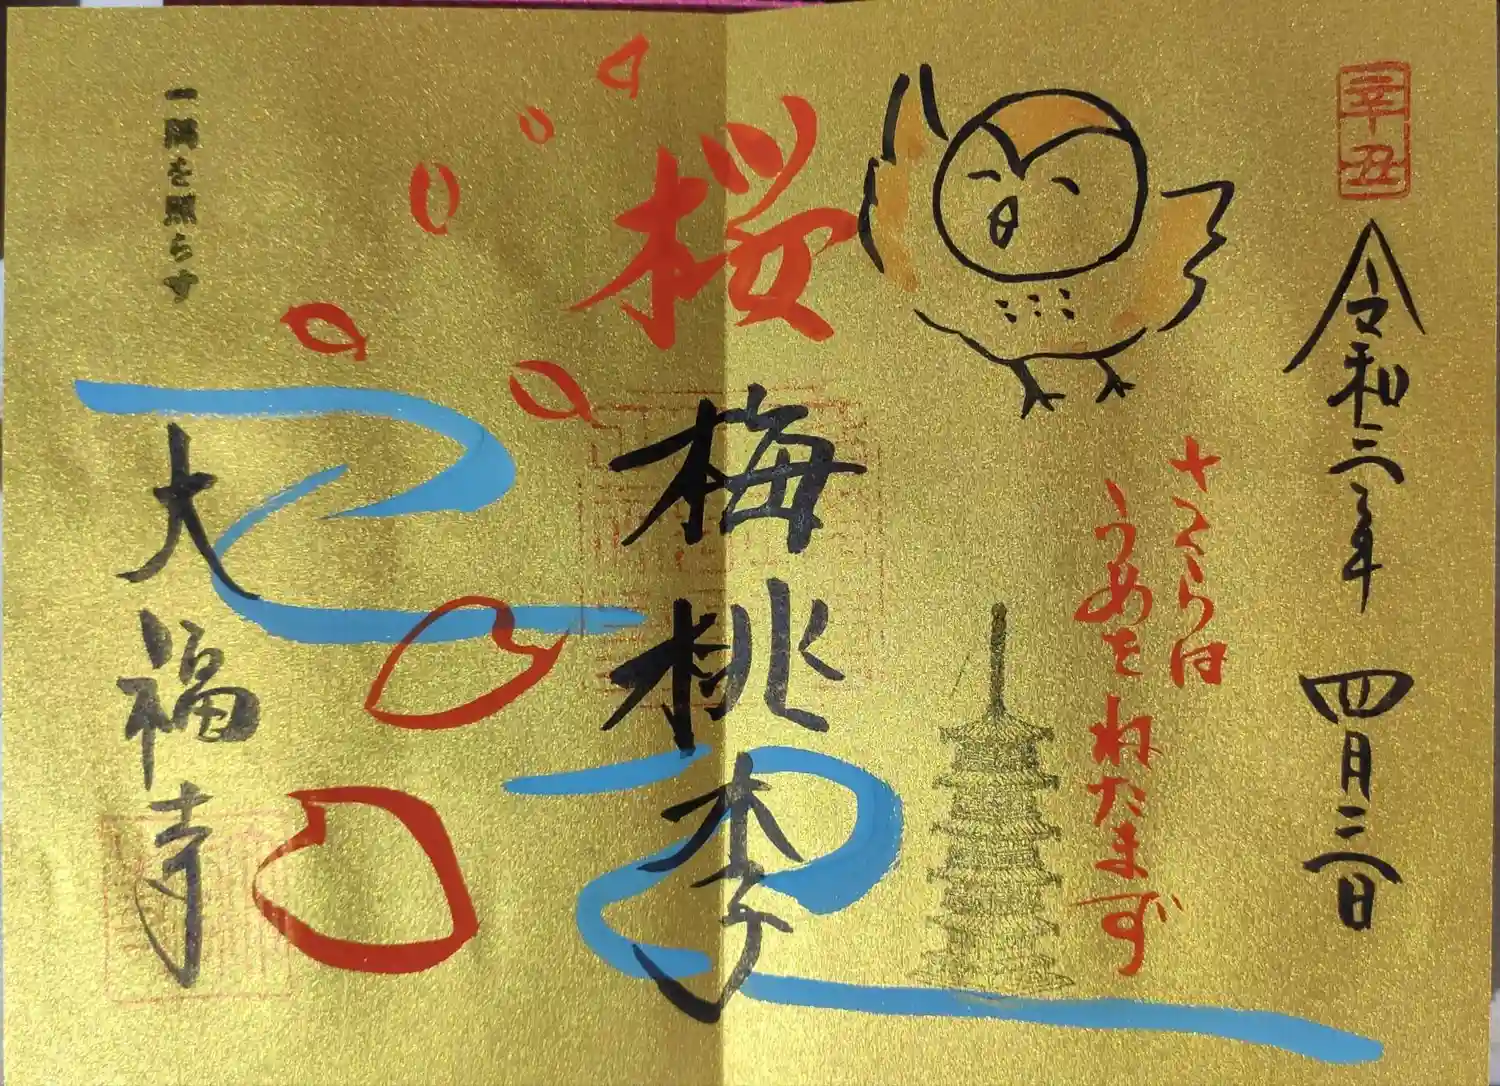 辛丑
令和三年 四月二日
さくらは
うめをねたまず
桜
梅桃李
一隅を照らす
大福寺